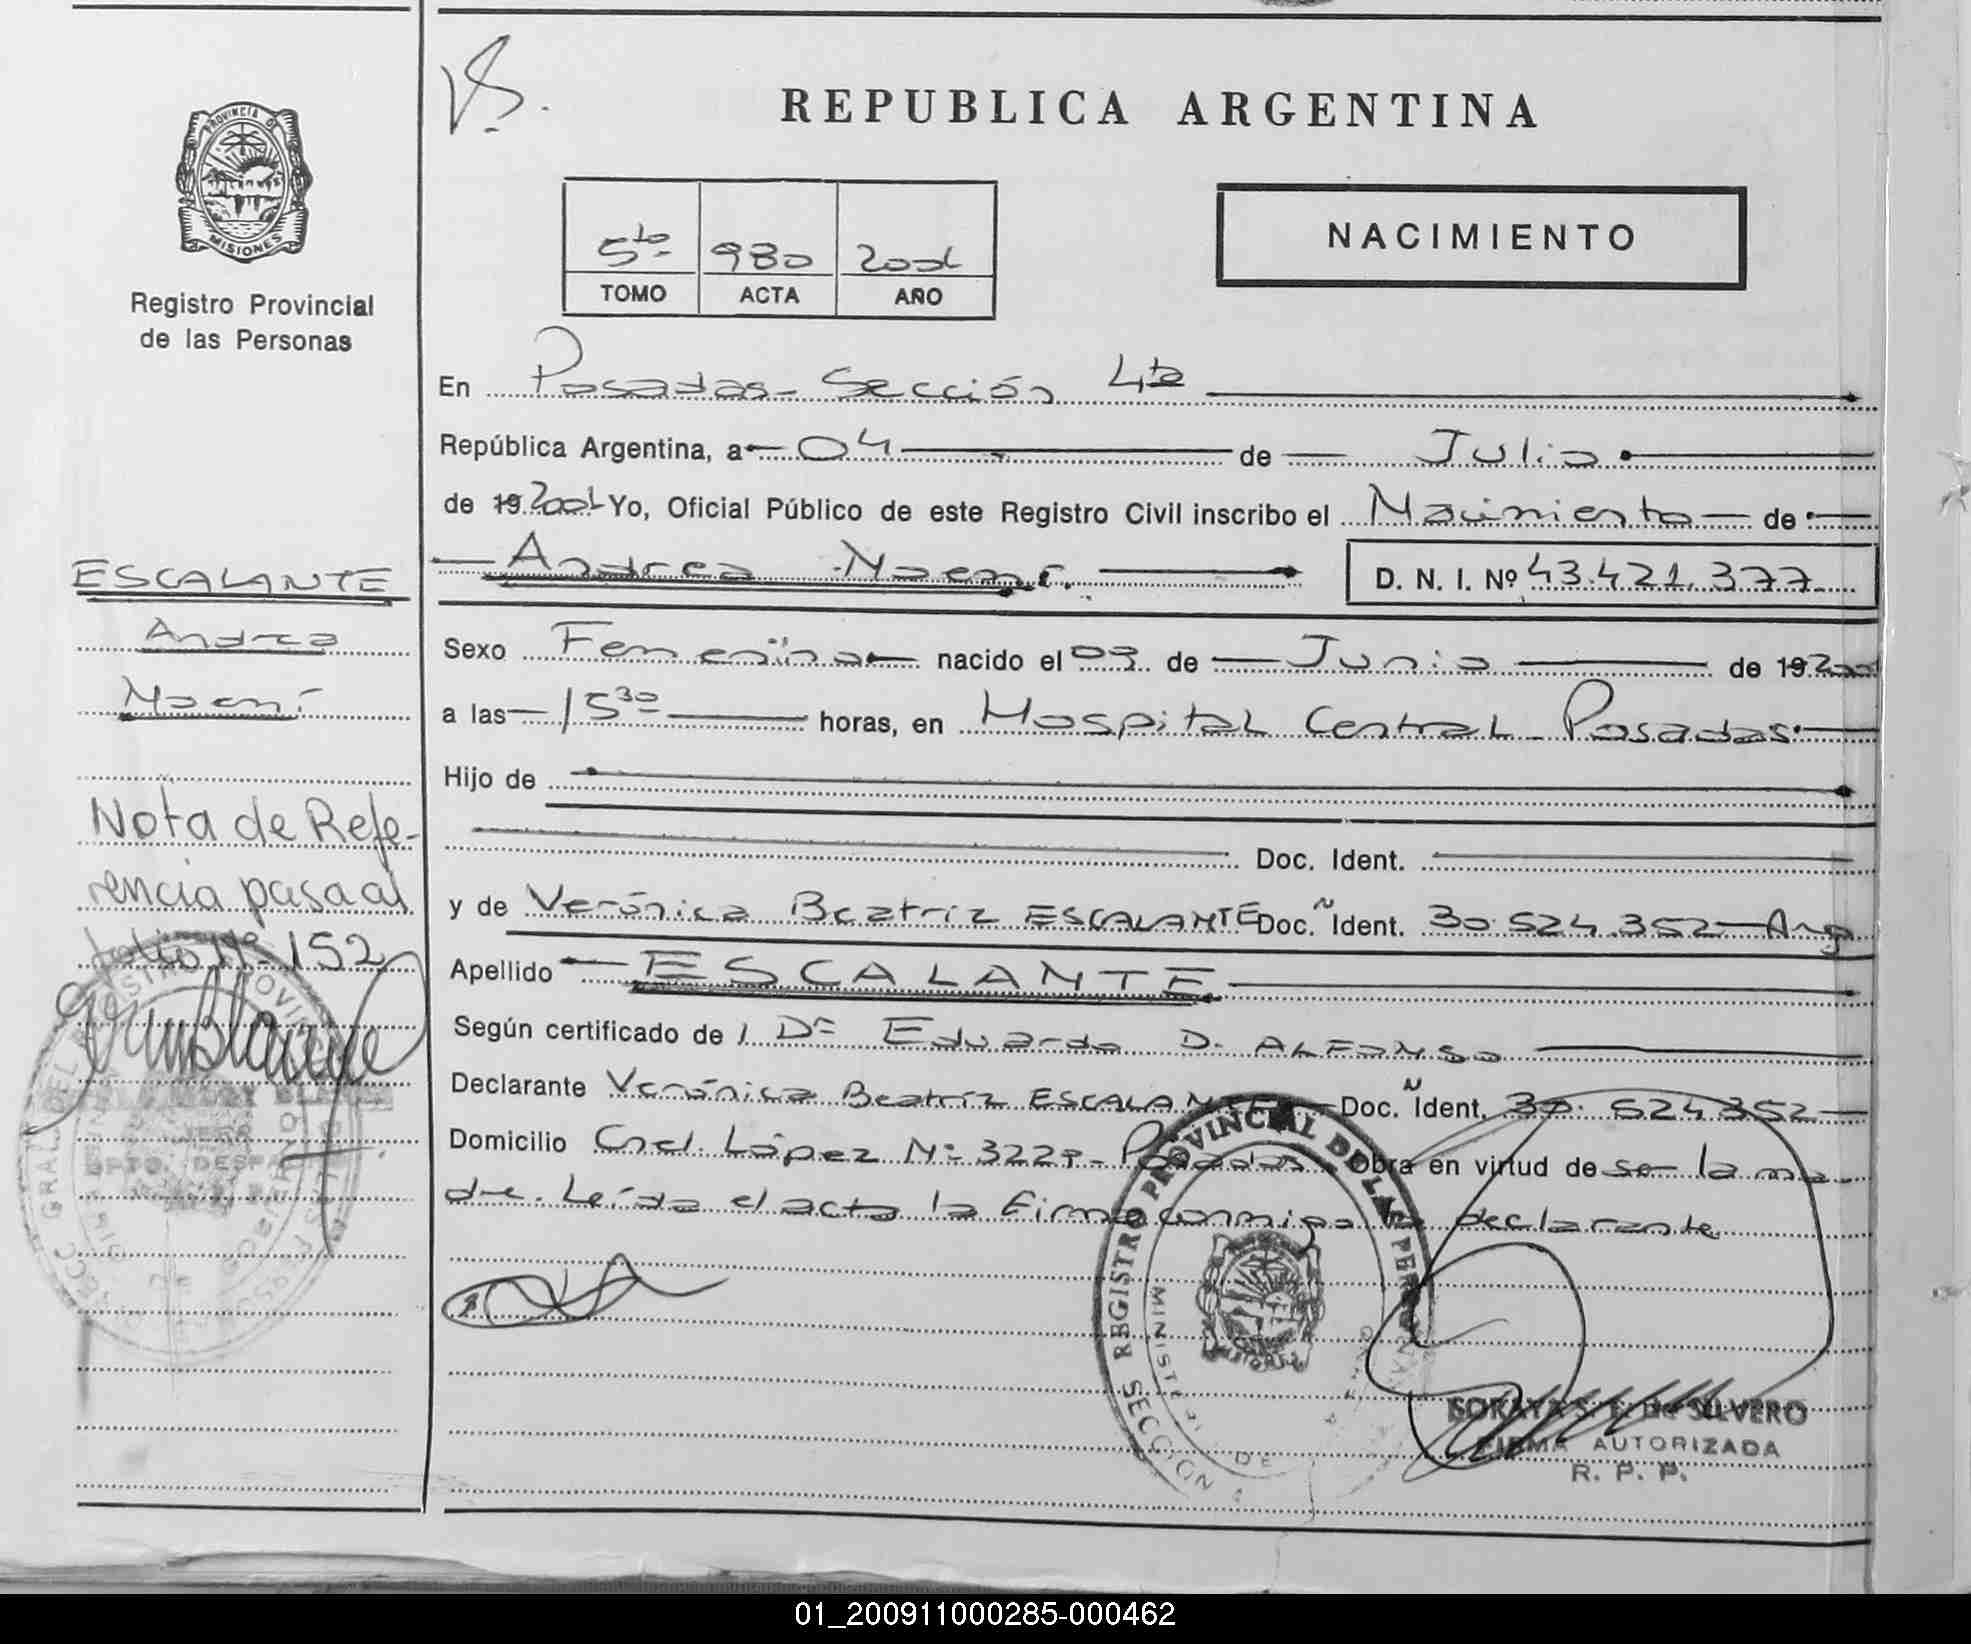 REPUBLICA ARGENTINA
PROVINCIA DE
MISIONES
Registro Provincial
de las Personas
5to 980 2001
TOMO ACTA AÑO
NACIMIENTO
En Posadas - Sección 4ta
República Argentina, a 04 de Julio
de 19 2001 Yo, Oficial Público de este Registro Civil inscribo el Nacimiento de
Andrea Noemí. D. N. I. Nº 43.421.377
Sexo Femenino nacido el 09 de Junio de 19 2001
a las 15 30 horas, en Hospital Central - Posadas
Hijo de
Doc. Ident.
y de Verónica Beatriz ESCALANTE Doc. Ident. 30.524.352 - Arg
Apellido ESCALANTE
Según certificado de Dr Eduardo D. ALFONSO
Declarante Verónica Beatriz ESCALANTE Doc. Ident. 30.524.352
Domicilio Cnel. López Nº 3229 - Posadas Obra en virtud de ser la ma
dre. Leída el acta la firma conmigo la declarante
ESCALANTE
Andrea
Noemí
Nota de Refe-
rencia pasa al
folio Nº 152
REGISTRO PROVINCIAL DE LAS PERSONAS
MINISTERIO DE
SECCION
SORAYA S. de SILVERO
FIRMA AUTORIZADA
R. P. P.
01_200911000285-000462